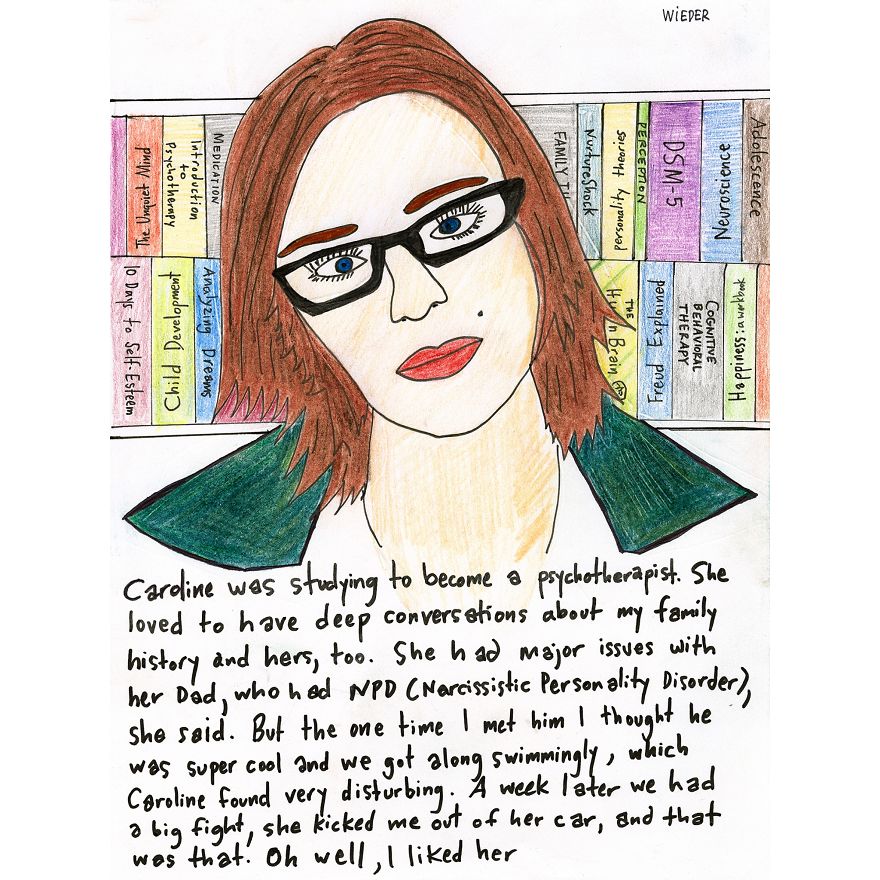 WIEDER
The Unquiet Mind
Introduction
to
Psychotherapy
MEDICATION
FAMILY TH
NurtureShock
personality theories
PERCEPTION
DSM-5
Neuroscience
Adolescence
10 Days to Self-Esteem
Child Development
Analyzing Dreams
THE
Human Brain
Freud Explained
COGNITIVE
BEHAVIORAL
THERAPY
Happiness: a workbook
Caroline was studying to become a psychotherapist. She
loved to have deep conversations about my family
history and hers, too. She had major issues with
her Dad, who had NPD (Narcissistic Personality Disorder),
she said. But the one time I met him I thought he
was super cool and we got along swimmingly, which
Caroline found very disturbing. A week later we had
a big fight, she kicked me out of her car, and that
was that. Oh well, I liked her